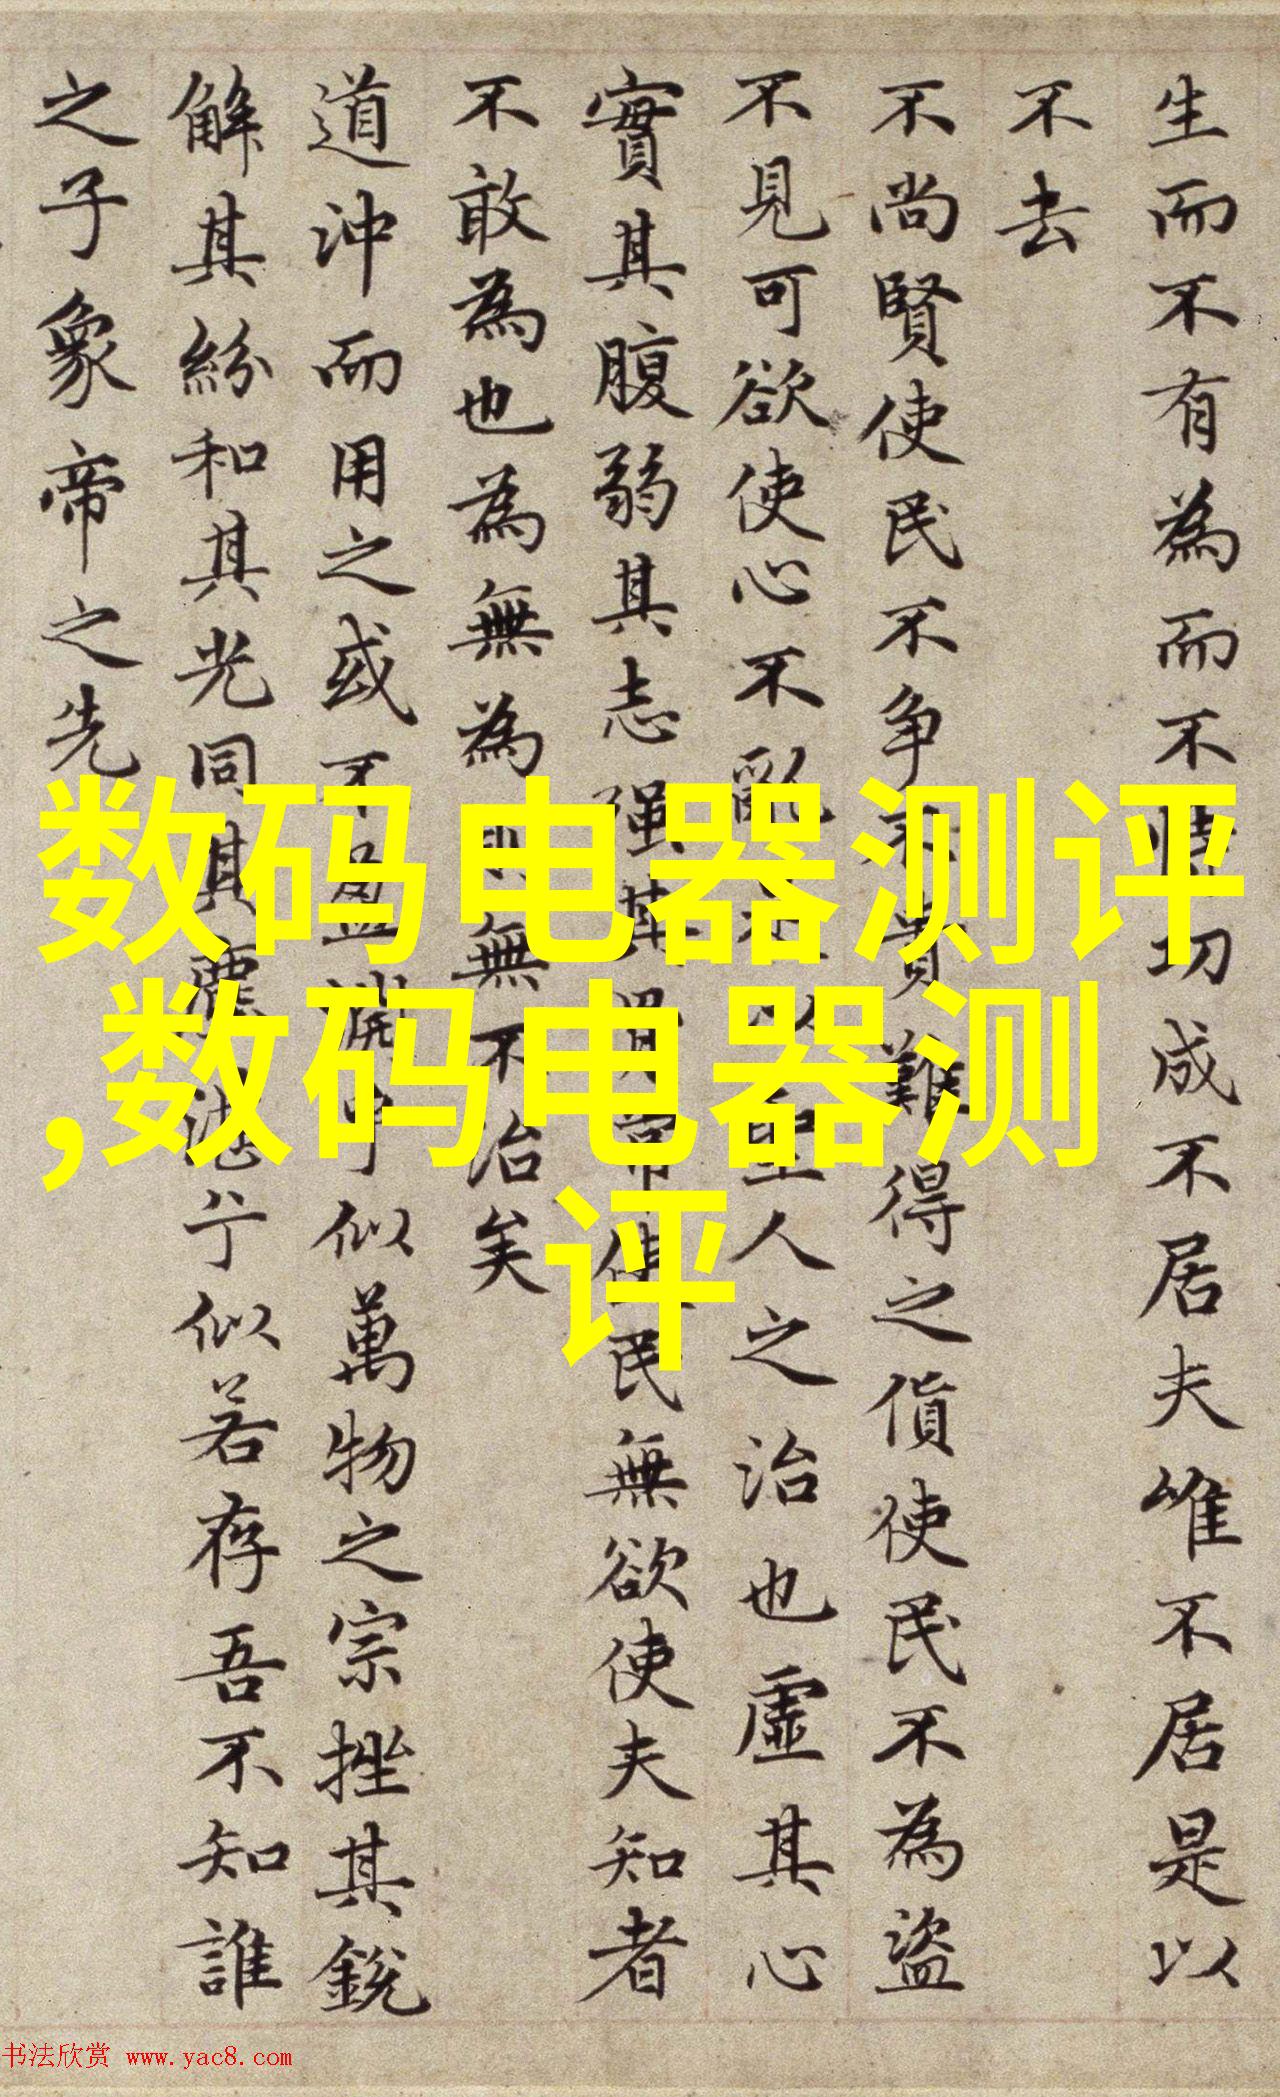 生而不有為而不恃功成不居夫唯不居是以
不去
不尚賢使民不争不貴難得之貨使民不為盜
不見可欲使心不亂是以聖人之治也虛其心
實其腹弱其志强其骨常使民無欲使夫知者
不敢為也為無為則無不治矣
道沖而用之或不盈淵乎似萬物之宗挫其銳
解其紛和其光同其塵湛兮似若存吾不知誰
之子象帝之先
数码电器测评
,数码电器测
评
书法欣赏 www.yac8.com